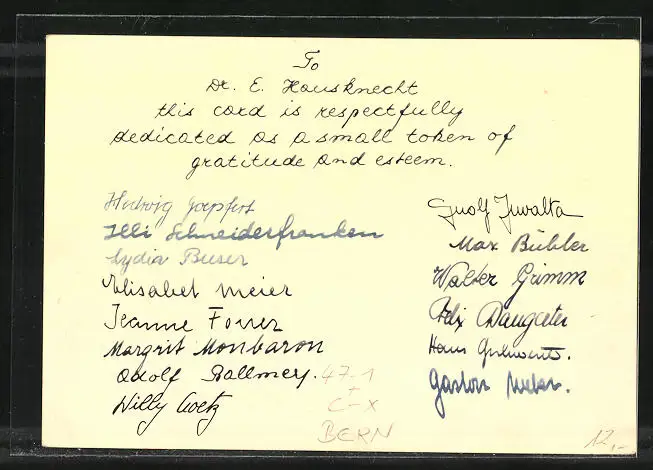 To
Dr. E. Hausknecht
this card is respectfully
dedicated as a small token of
gratitude and esteem.
Hedwig
Illi Schneiderfranken
Lydia Buser
Elisabet Meier
Jeanne Forrer
Margrit Monbaron
Adolf Ballmer.
Willy Goetz
Juvalta
Max Bühler
Walter Grimm
Felix Daugeter
Hans
Gaston Weber.
47-1
+
C-X
BERN
12,-